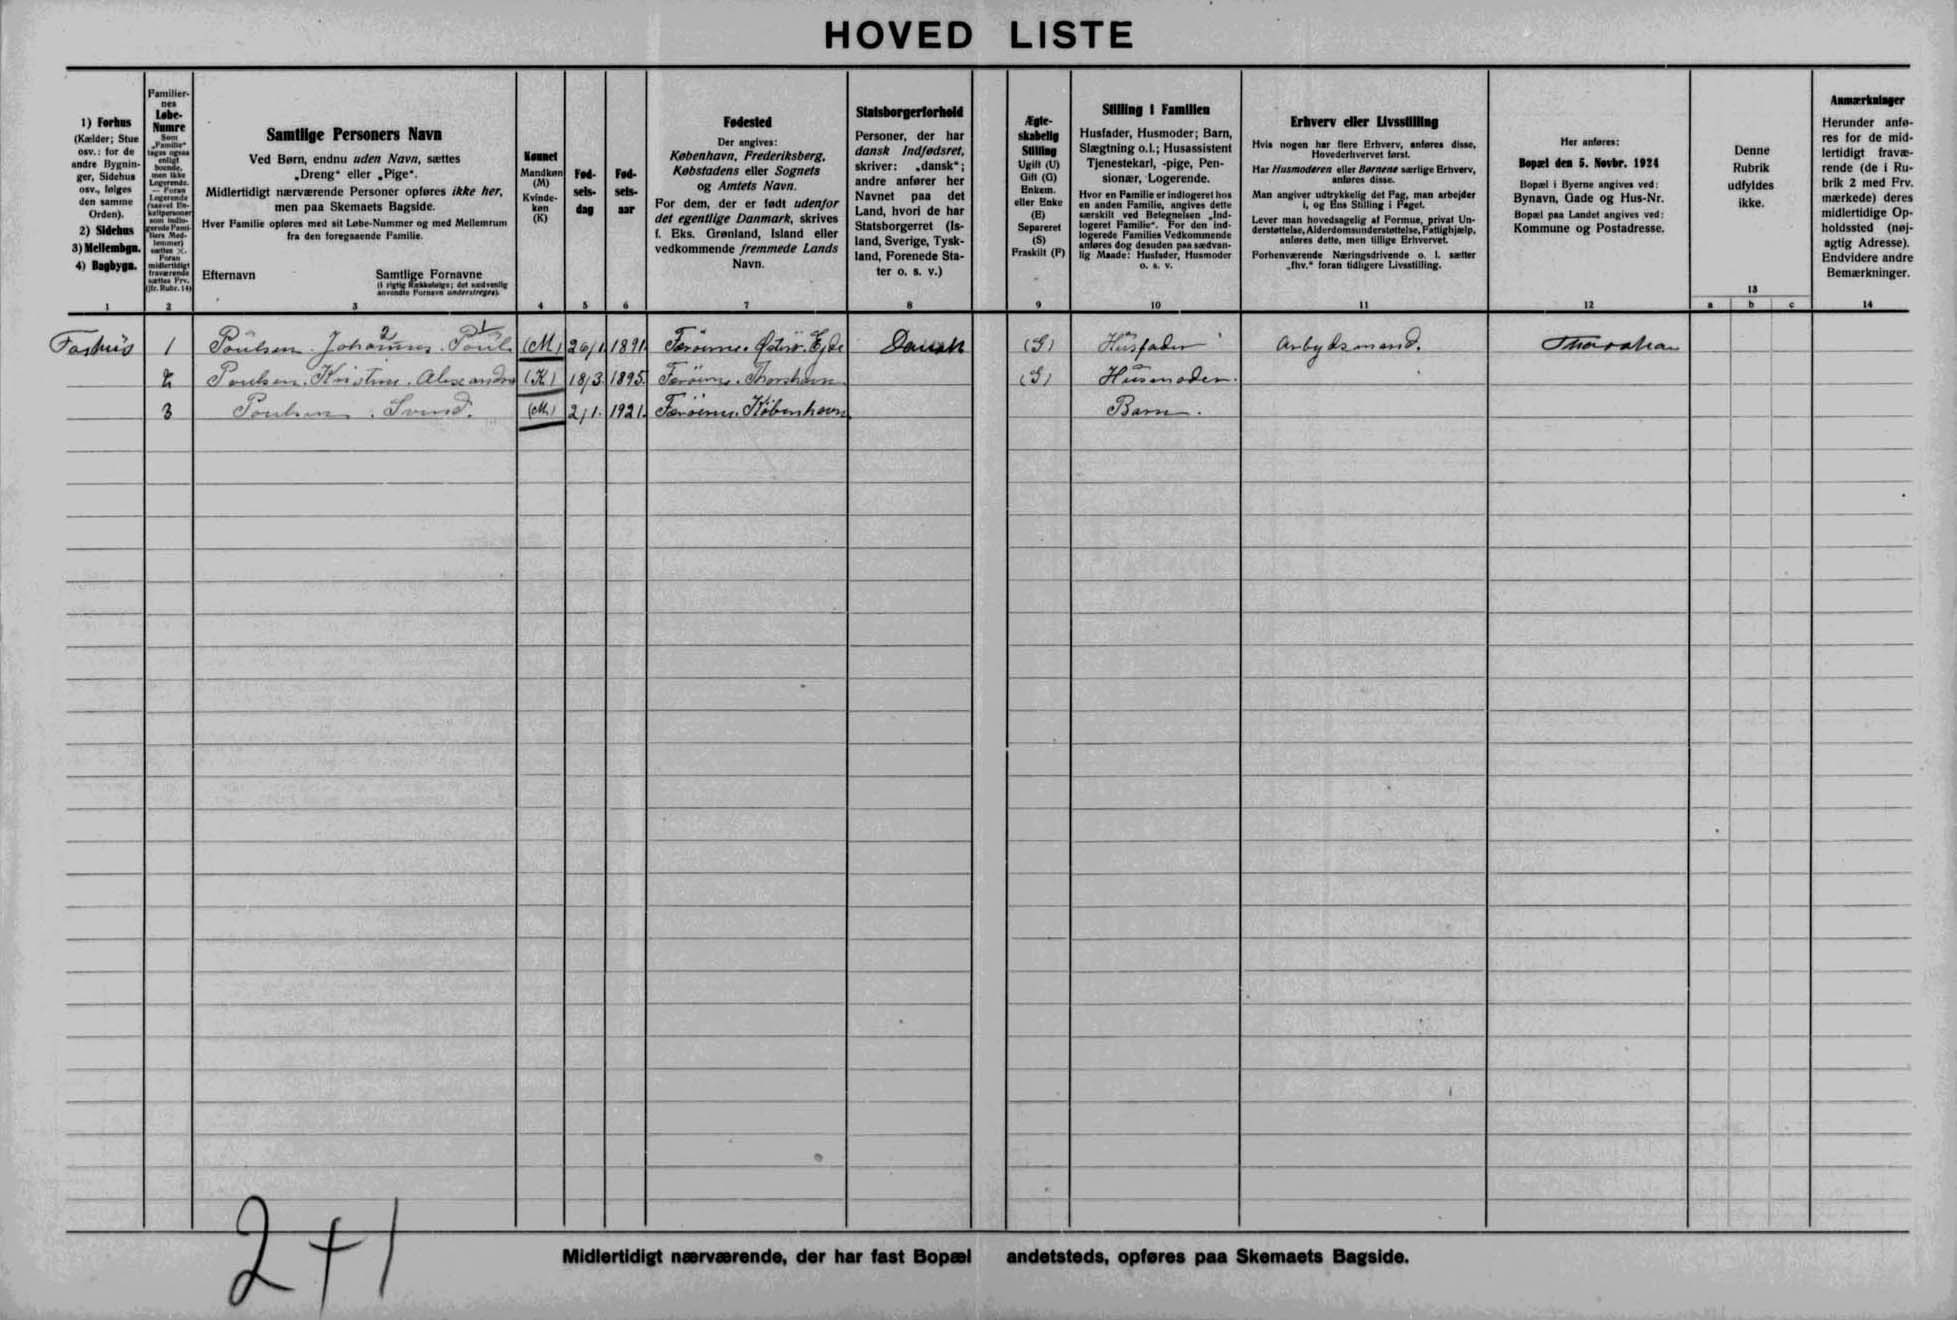 HOVED LISTE
1) Forhus
(Kælder; Stue
osv.: for de
andre Bygnin-
ger, Sidehus
osv., følges
den samme
Orden).
2) Sidehus
3) Mellembgn.
4) Bagbygn.
1
Familier-
nes
Løbe-
Numre
Som
„Familie“
tages ogsaa
enligt
boende,
men ikke
Logerende.
— Foran
Logerende
(saavel En-
keltpersoner
som indlo-
gerede Fami-
liers Med-
lemmer)
sættes ×.
Foran
midlertidigt
fraværende
sættes Frv.
(jfr. Rubr. 14)
2
Samtlige Personers Navn
Ved Børn, endnu uden Navn, sættes
„Dreng“ eller „Pige“.
Midlertidigt nærværende Personer opføres ikke her,
men paa Skemaets Bagside.
Hver Familie opføres med sit Løbe-Nummer og med Mellemrum
fra den foregaaende Familie.
Efternavn Samtlige Fornavne
(i rigtig Rækkefølge; det sædvanlig
anvendte Fornavn understreges).
3
Kønnet
Mandkøn
(M)
Kvinde-
køn
(K)
4
Fød-
sels-
dag
5
Fød-
sels-
aar
6
Fødested
Der angives:
København, Frederiksberg,
Købstadens eller Sognets
og Amtets Navn.
For dem, der er født udenfor
det egentlige Danmark, skrives
f. Eks. Grønland, Island eller
vedkommende fremmede Lands
Navn.
7
Statsborgerforhold
Personer, der har
dansk Indfødsret,
skriver: „dansk“;
andre anfører her
Navnet paa det
Land, hvori de har
Statsborgerret (Is-
land, Sverige, Tysk-
land, Forenede Sta-
ter o. s. v.)
8
Ægte-
skabelig
Stilling
Ugift (U)
Gift (G)
Enkem.
eller Enke
(E)
Separeret
(S)
Fraskilt (F)
9
Stilling i Familien
Husfader, Husmoder; Barn,
Slægtning o.l.; Husassistent
Tjenestekarl, -pige, Pen-
sionær, Logerende.
Hvor en Familie er indlogeret hos
en anden Familie, angives dette
særskilt ved Betegnelsen „Ind-
logeret Familie“. For den ind-
logerede Families Vedkommende
anføres dog desuden paa sædvan-
lig Maade: Husfader, Husmoder
o. s. v.
10
Erhverv eller Livsstilling
Hvis nogen har flere Erhverv, anføres disse,
Hovederhvervet først.
Har Husmoderen eller Børnene særlige Erhverv,
anføres disse.
Man angiver udtrykkelig det Fag, man arbejder
i, og Ens Stilling i Faget.
Lever man hovedsagelig af Formue, privat Un-
derstøttelse, Alderdomsunderstøttelse, Fattighjælp,
anføres dette, men tillige Erhvervet.
Forhenværende Næringsdrivende o. l. sætter
„fhv.“ foran tidligere Livsstilling.
11
Her anføres:
Bopæl den 5. Novbr. 1924
Bopæl i Byerne angives ved:
Bynavn, Gade og Hus-Nr.
Bopæl paa Landet angives ved:
Kommune og Postadresse.
12
Denne
Rubrik
udfyldes
ikke.
13
a b c
Anmærkninger
Herunder anfø-
res for de mid-
lertidigt fravæ-
rende (de i Ru-
brik 2 med Frv.
mærkede) deres
midlertidige Op-
holdssted (nøj-
agtig Adresse).
Endvidere andre
Bemærkninger.
14
2 1
Forhüs 1 Poülsen. Johannes. Poül. (M) 26/1. 1891. Færöerne. Øströ. Ejde Dansk (G) Hüsfader Arbydsmand. Thorshavn
2 Poulsen. Kristine. Alexandra (K) 18/3. 1895. Færöerne. Thorshavn. (G) Hüsmoder.
3 Poulsen. Svend. (M) 2/1. 1921. Færöerne. København. Barn.
2+1
Midlertidigt nærværende, der har fast Bopæl andetsteds, opføres paa Skemaets Bagside.